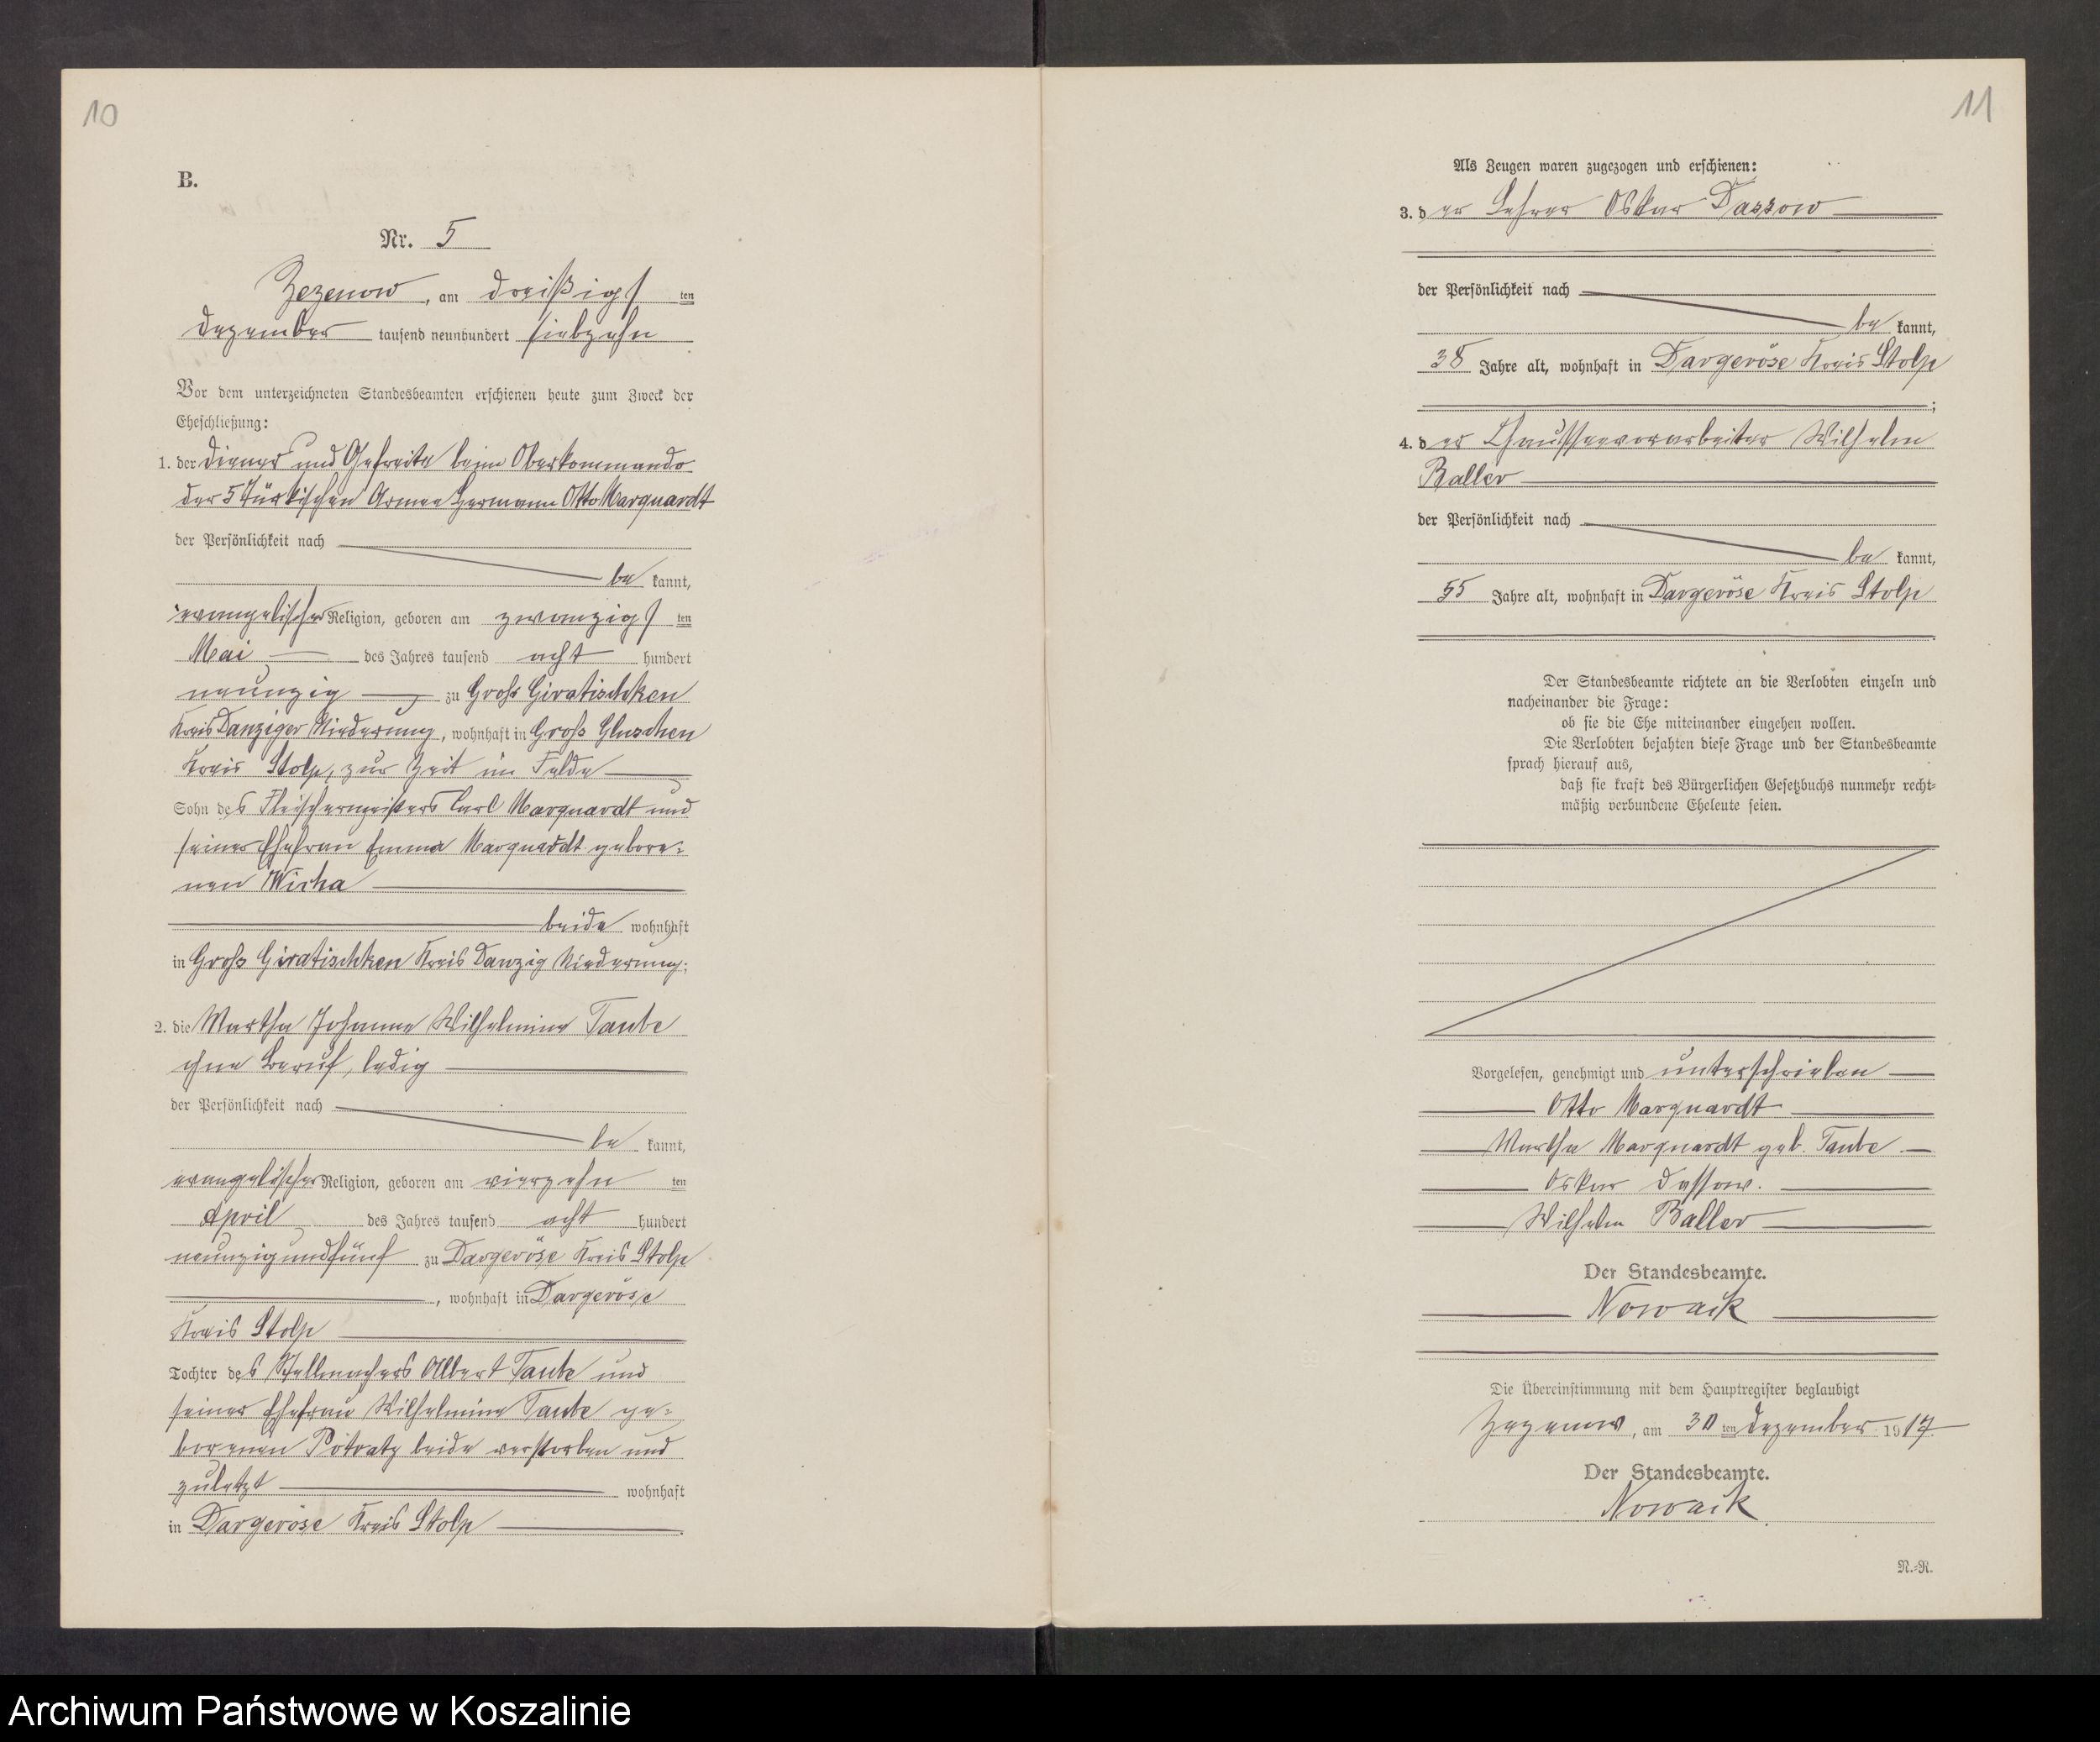 10
B.
Nr. 5
Zezenow, am dreißigsten
Dezember tausend neunhundert siebzehn
Vor dem unterzeichneten Standesbeamten erschienen heute zum Zweck der
Eheschließung:
1. der Diener und Gefreite beim Oberkommando
der 5 Türkischen Armee Hermann Otto Marquardt
der Persönlichkeit nach
be kannt,
evangelischer Religion, geboren am zwanzigsten
Mai des Jahres tausend acht hundert
neunzig zu Groß Giratischken
Kreis Danziger Niederung, wohnhaft in Groß Gluschen
Kreis Stolp, zur Zeit im Felde
Sohn des Fleischermeisters Carl Marquardt und
seiner Ehefrau Emma Marquardt gebore-
nen
beide wohnhaft
in Groß Giratischken Kreis Danzig Niederung;
2. die Martha Johanna Wilhelmine Taube
ohne Beruf, ledig
der Persönlichkeit nach
be kannt,
evangelischer Religion, geboren am vierzehnten
April des Jahres tausend acht hundert
neunzigundfünf zu Dargeröse Kreis Stolp
, wohnhaft in Dargeröse
Kreis Stolp
Tochter des Stellmachers Albert Taube und
seiner Ehefrau Wilhelmine Taube ge-
borenen Potratz beide verstorben und
zuletzt wohnhaft
in Dargeröse Kreis Stolp.
11
Als Zeugen waren zugezogen und erschienen:
3. der Lehrer Oskar Dassow
der Persönlichkeit nach
be kannt,
38 Jahre alt, wohnhaft in Dargeröse Kreis Stolp
;
4. der Chausseevorarbeiter Wilhelm
Baller
der Persönlichkeit nach
be kannt,
55 Jahre alt, wohnhaft in Dargeröse Kreis Stolp
Der Standesbeamte richtete an die Verlobten einzeln und
nacheinander die Frage:
ob sie die Ehe miteinander eingehen wollen.
Die Verlobten bejahten diese Frage und der Standesbeamte
sprach hierauf aus,
daß sie kraft des Bürgerlichen Gesetzbuchs nunmehr recht-
mäßig verbundene Eheleute seien.
Vorgelesen, genehmigt und unterschrieben
Otto Marquardt
Martha Marquardt geb. Taube
Oskar Dassow.
Wilhelm Baller
Der Standesbeamte.
Nowack
Die Übereinstimmung mit dem Hauptregister beglaubigt
Zezenow, am 30 ten Dezember 1917
Der Standesbeamte.
Nowack
N.-R.
Archiwum Państwowe w Koszalinie